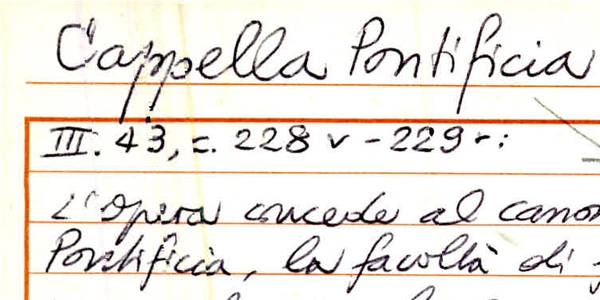 Cappella Pontificia
III. 43, c. 228 v - 229 r:
L'Opera concede al canon
Pontificia, la facoltà di